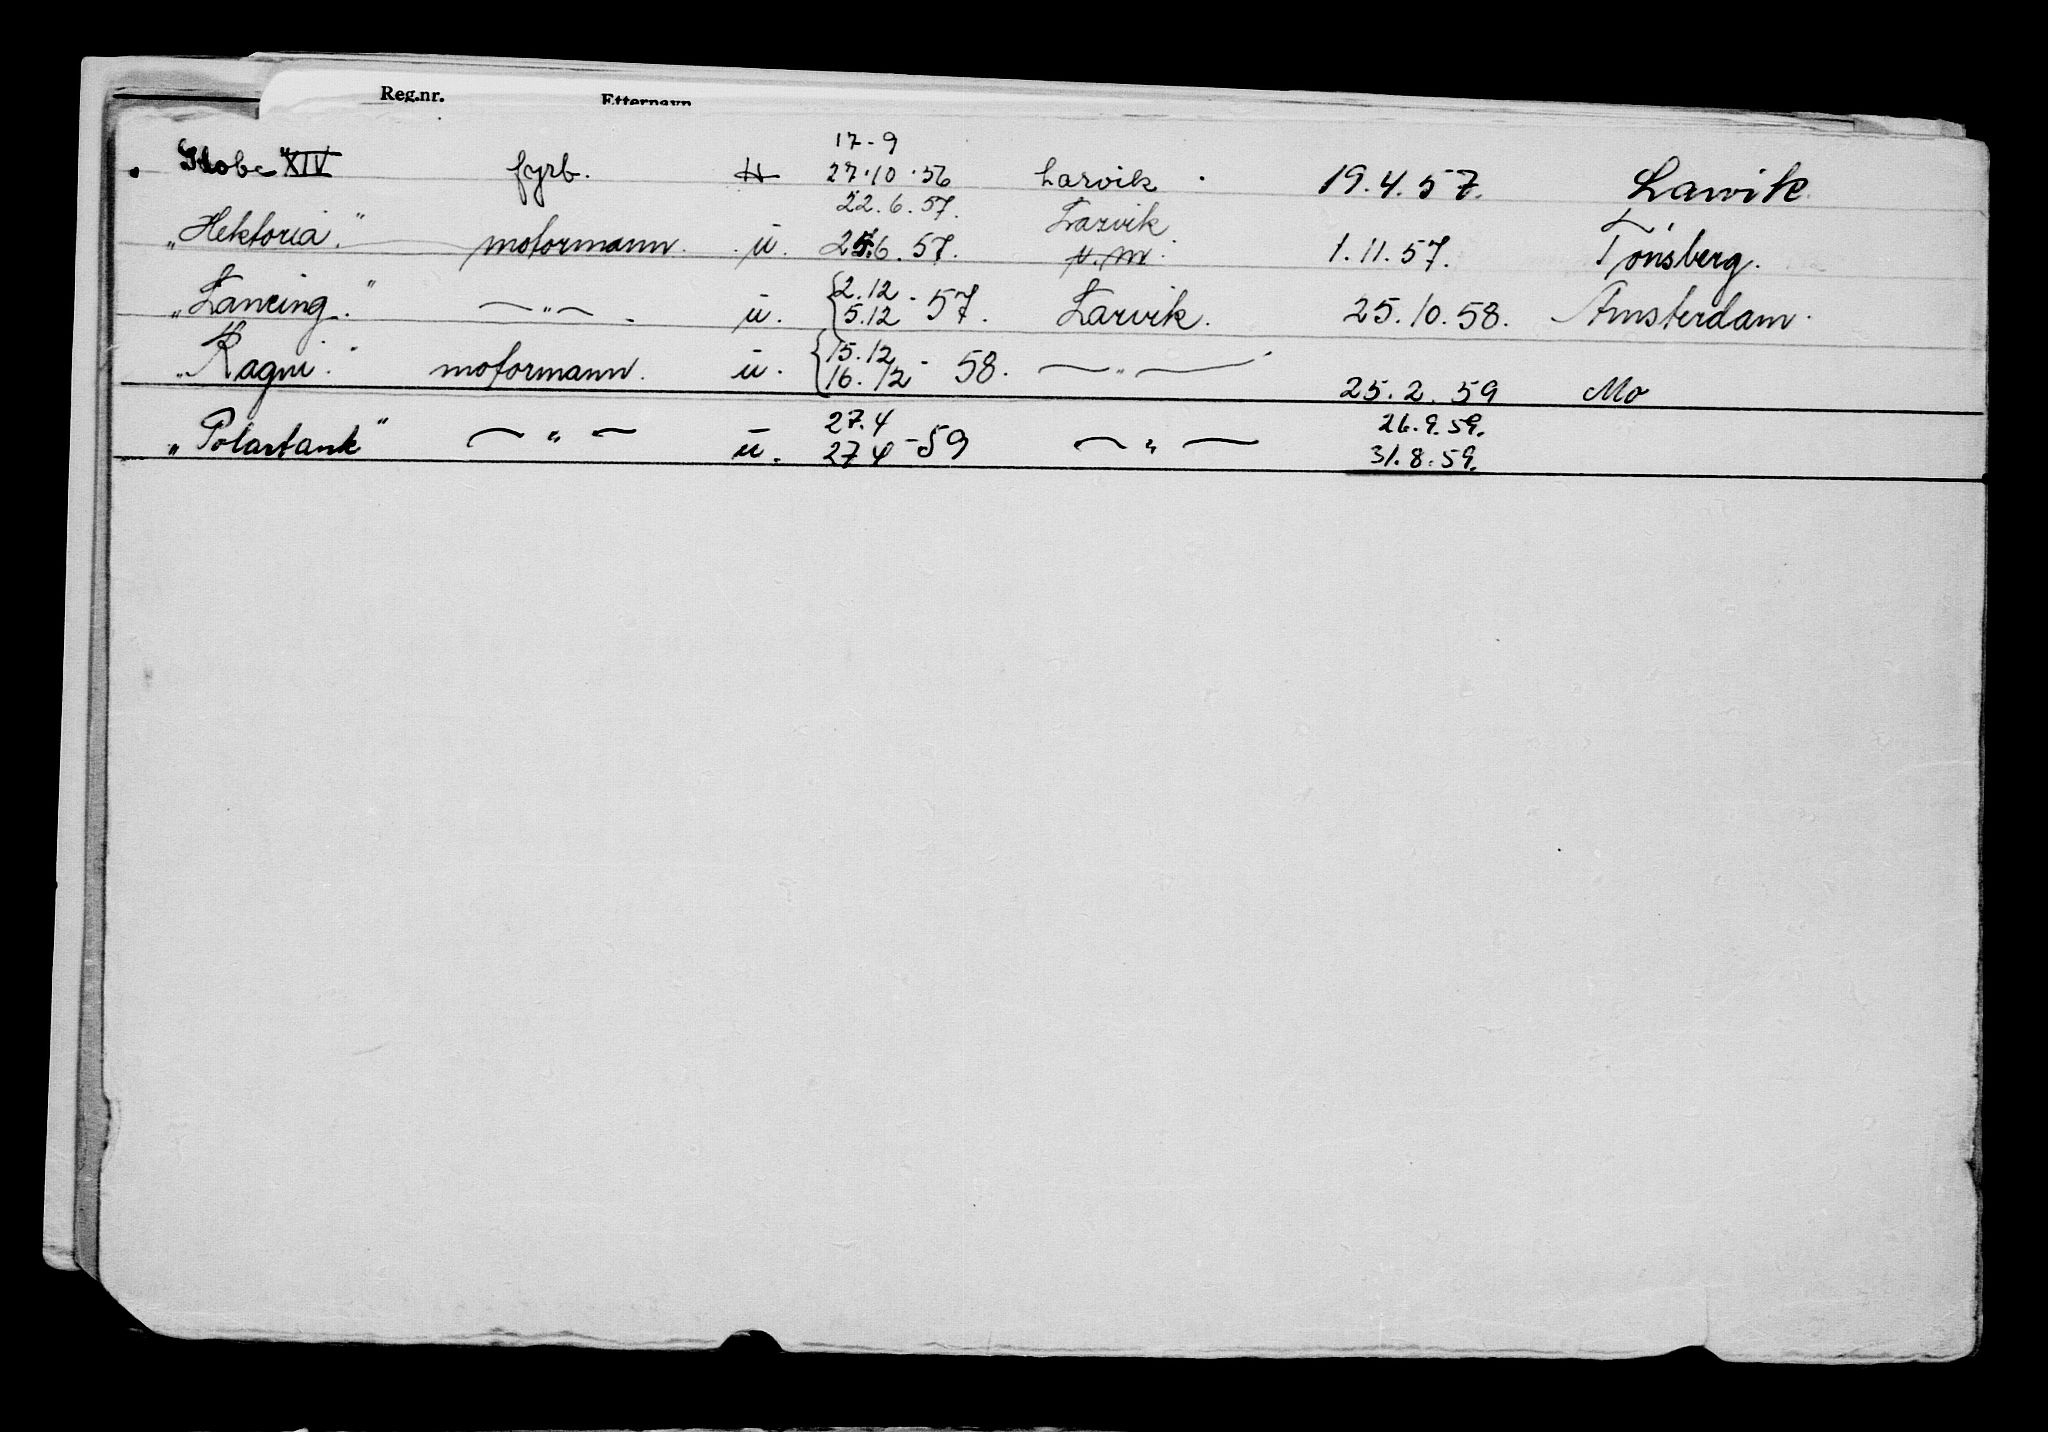 Reg.nr. Etternavn
17-9
Globe XIV fyrb. H 27.10.56 Larvik 19.4.57. Larvik.
22.6.57. Larvik
„Hektoria." motormann. u. 25.6.57. 1.11.57. Tønsberg.
„Lancing." — " — u. {2.12 5.12 - 57. Larvik. 25.10.58. Amsterdam.
„Ragni." motormann. u. {15.12 16.12 - 58. — " — 25.2.59 Mo
27.4 26.9.59.
„Polartank" — " — u. 27 4 -59 — " — 31.8.59.